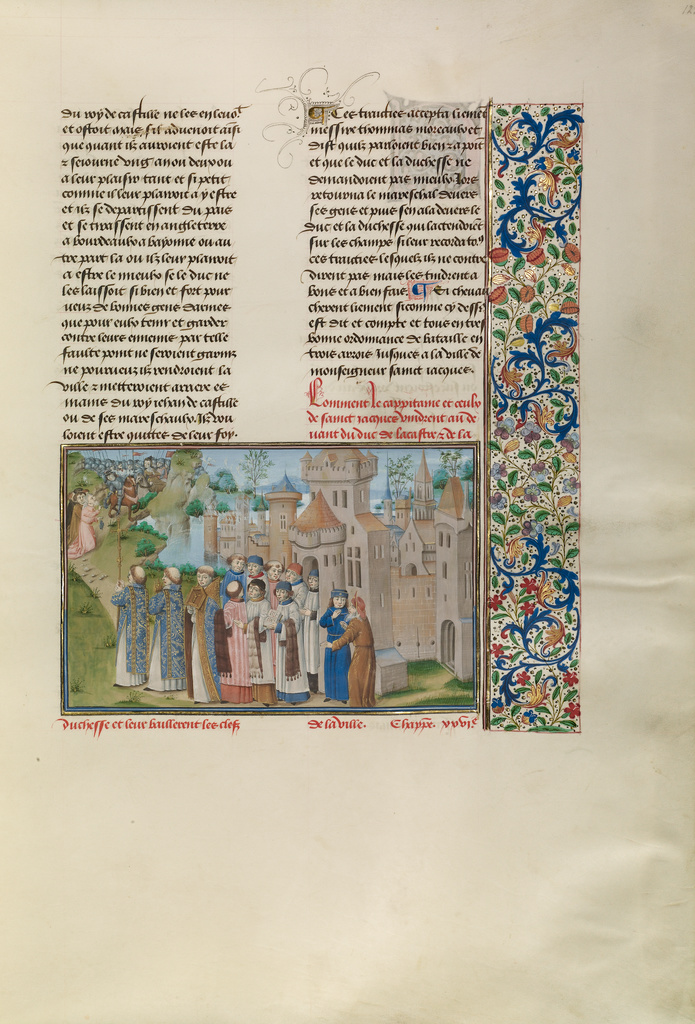 du roy de castille ne les en leuoit
et ostoit mais sil aduenoit ainsi
que quant ilz auroient este la
z seiourne vng an ou deux ou
a leur plaisir tant et si petit
comme il leur plairoit a y estre
et ilz se departissent du pais
et se traissent en angleterre
a bourdeaulx a bayonne ou au
tre part la ou il leur plairoit
a estre le mieulx se le duc ne
les laissoit si bien et fort pour
ueuz de bonnes gens darmes
que pour eulx tenir et garder
contre leurs ennemis par telle
faulte point ne seroient garniz
ne pourueuz ilz rendroient la
ville z mettroient arriere es
mains du roy iehan de castille
ou de ses mareschaulx. Ilz vou
loient estre quittes de leur foy.
Ces traities accepta liement
messire thommas moreaulx et
dist quilz parloient bien z a point
et que le duc et la duchesse ne
demandoient pas mieulx. Lors
retourna le mareschal deuers
ses gens et puis sen ala deuers le
duc et la duchesse qui lactendoient
sur les champs si leur recorda tous
ces traities lesquelz ilz ne contre
dirent pas mais les tindrent a
bons et a bien fais. Si cheuau
cherent liement si comme cy dessus
est dit et compte et tous en tres
bonne ordonnance de bataille en
trois arrois Iusques a la ville de
monseigneur sainct iacques.
Comment le cappitaine et ceulx
de sainct iacques vindrent au de
uant du duc de lacastre z de la
duchesse et leur baillerent les clefz
de la ville. Chappe. xxvie